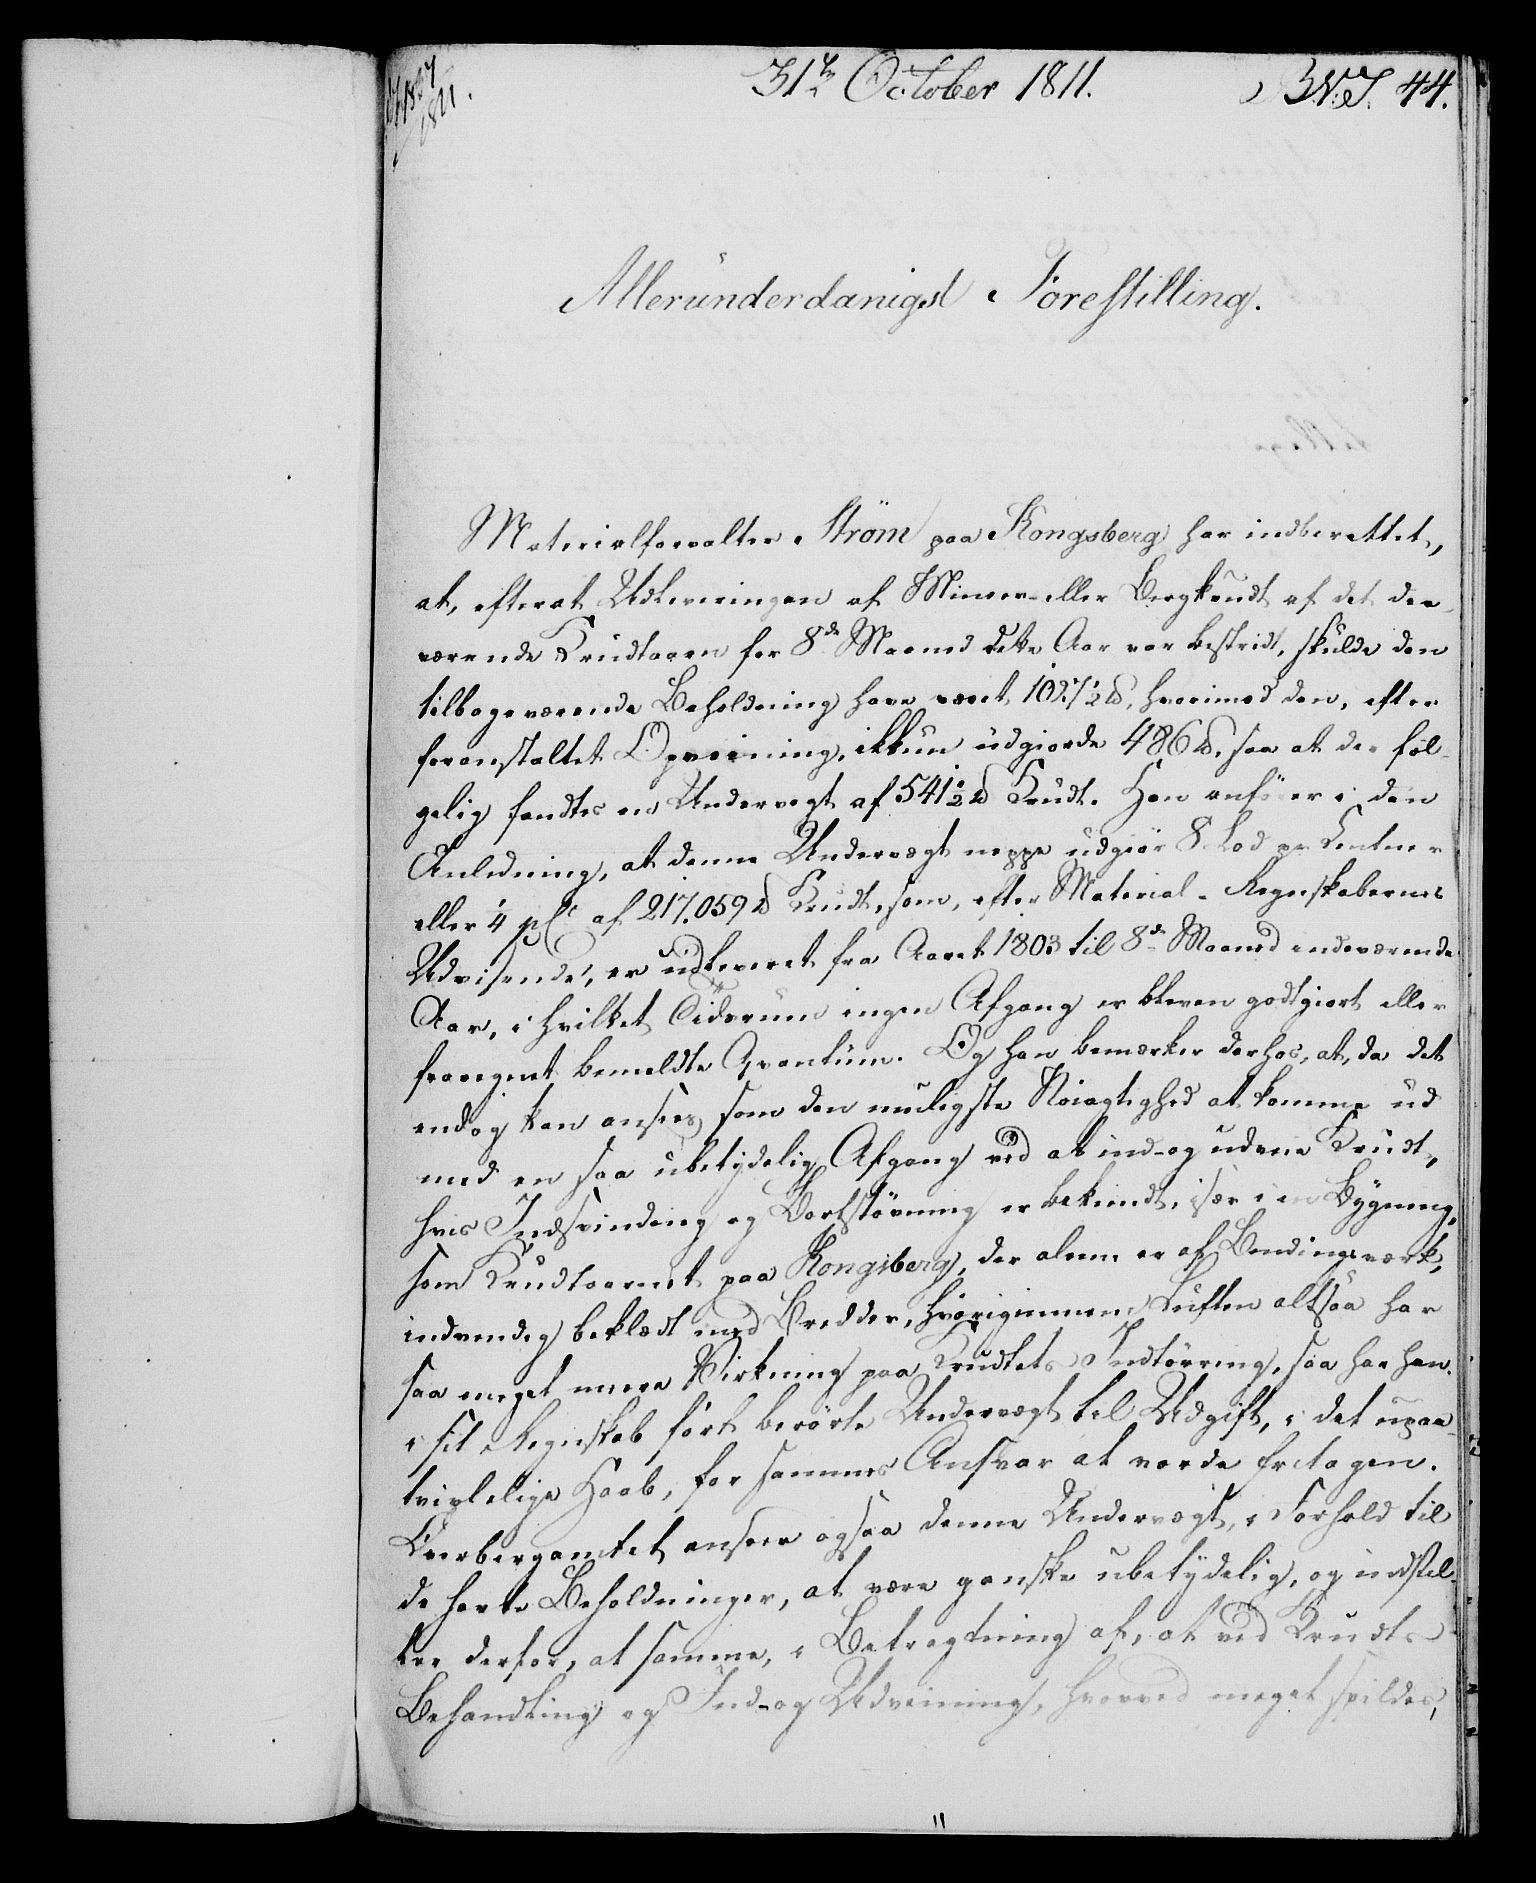 31te October 1811.
B.N.I. 44.
1827
1811.
Allerunderdanigst Forestilling.
Materialforvalter Ström paa Kongsberg har indberettet,
at, efterat Udleveringen af Miner- eller Bergkrudt af det der-
værende Krudtaarn for 8de Maaned dette Aar var bestridt, skulde den
tilbageværende Beholdning have været 1027½ ℔, hvorimod den, efter
foranstaltet Opveining, ikkun udgjorde 486 ℔, saa at der föl-
gelig fandtes en Undervegt af 541½ ℔ Krudt. Han anförer i den
Anledning, at denne Undervægt neppe udgiör 8 Lod pr Centner
eller ¼ pCt af 217.059 ℔ Krudt, som, efter Material-Regnskabernes
Udvisende, er udleveret fra Aaret 1803 til 8de Maaned indeværende
Aar, i hvilket Tidsrum ingen Afgang er bleven godtgiort eller
fraregnet bemeldte Qvantum. Og han bemærker derhos, at, da det
endog kan ansees som den muligste Nöiagtighed at komme ud
med en saa ubetydelig Afgang ved at ind- og udveie Krudt,
hvis Indsvinding og Bortstövning er bekiendt, især i en Bygning,
som Krudtaarnet paa Kongsberg, der alene er af Bindingsværk,
indvendig beklædt med Bredder, hvorigiennem Luften altsaa har
saa meget mere Virkning paa Krudtets Indtörring, saa har han
i sit Regnskab fört berörte Undervægt til Udgift, i det upaa-
tvivlelige Haab, for sammes Ansvar at vorde fritagen.
Overbergamtet anseer ogsaa denne Undervægt, i Forhold til
de havte Beholdninger, at være ganske ubetydelig, og indstil-
ler derfor, at samme, i Betragtning af, at ved Krudts
Behandling og Ind- og Udveining, hvorved meget spildes,